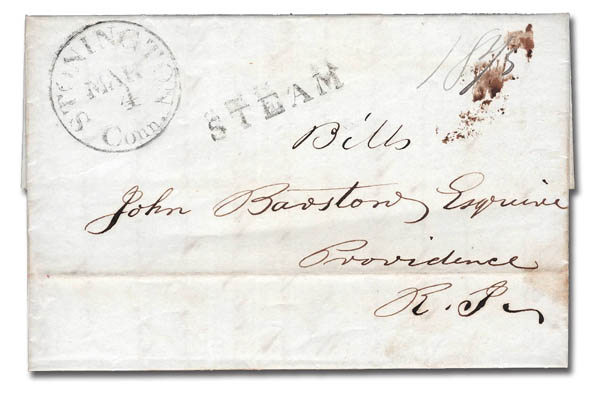 STONINGTON
MAR
4
Conn.
STEAM
Bills
John Barstow Esquire
Providence
R. I.